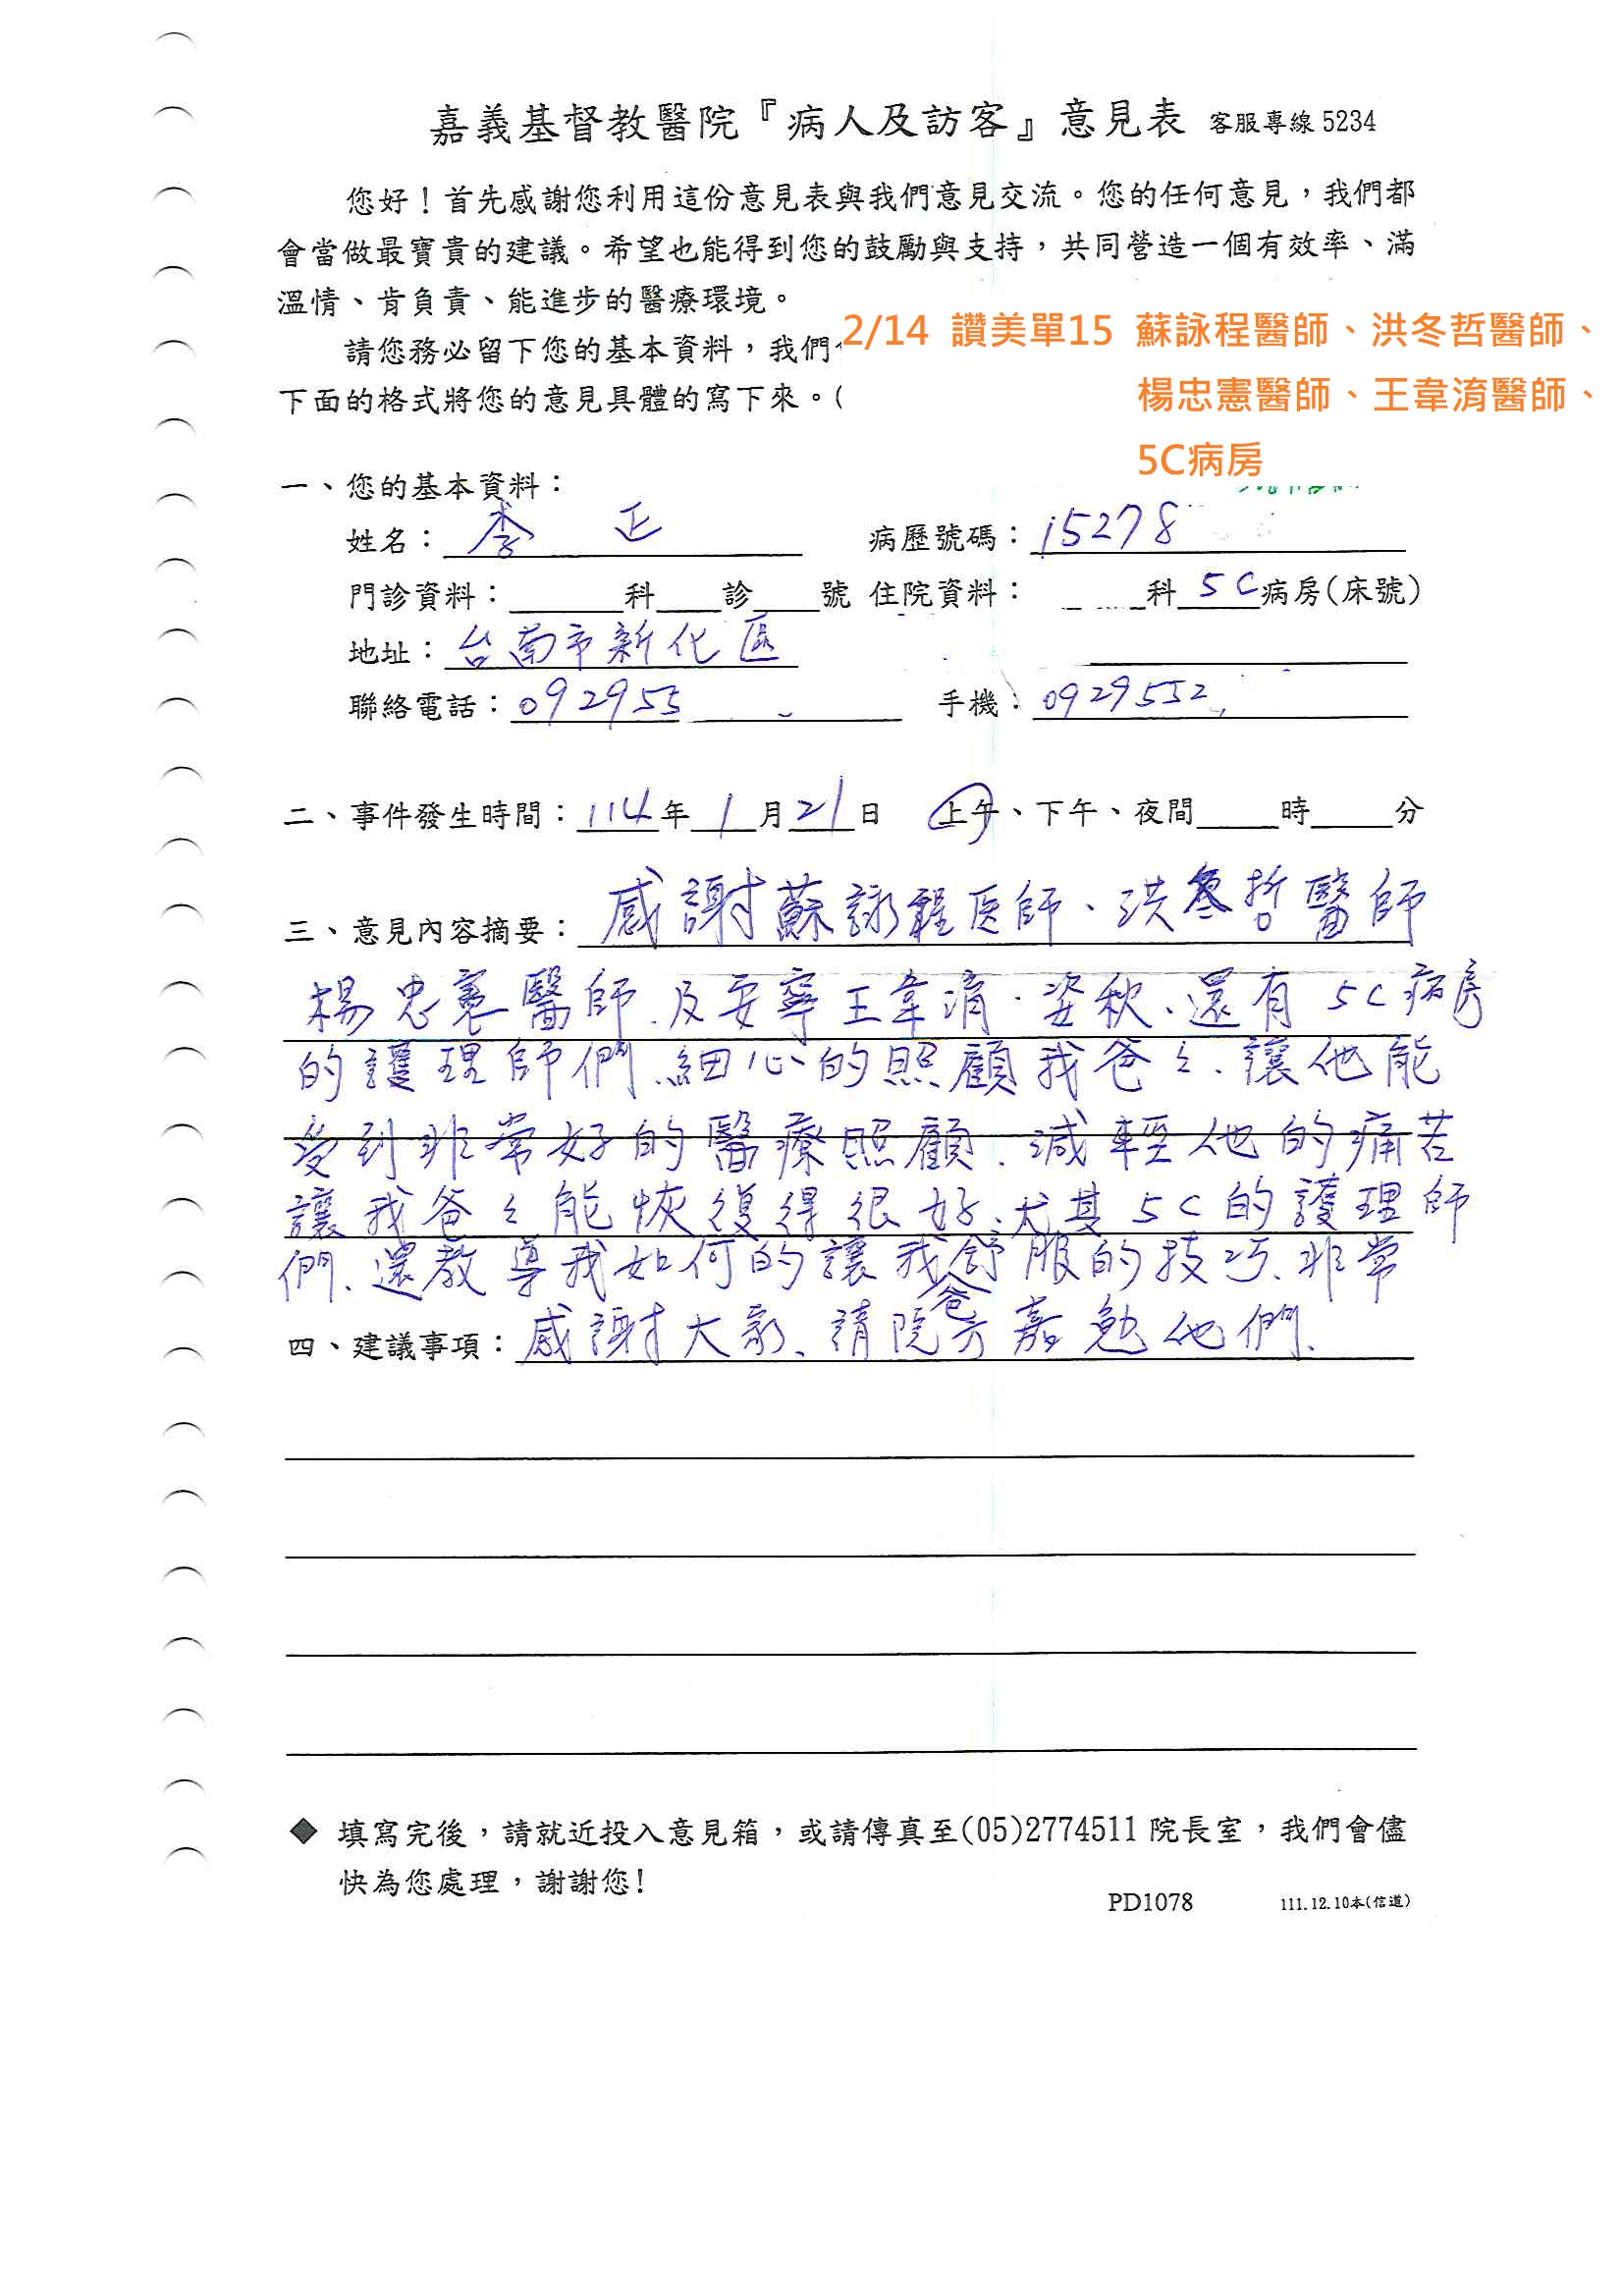 嘉義基督教醫院『病人及訪客』意見表 客服專線 5234
您好！首先感謝您利用這份意見表與我們意見交流。您的任何意見，我們都
會當做最寶貴的建議。希望也能得到您的鼓勵與支持，共同營造一個有效率、滿
溫情、肯負責、能進步的醫療環境。
2/14 讚美單15 蘇詠程醫師、洪冬哲醫師、
請您務必留下您的基本資料，我們
楊忠憲醫師、王韋淯醫師、
下面的格式將您的意見具體的寫下來。(
5C病房
一、您的基本資料：
姓名：李 正 病歷號碼：15278
門診資料：科 診 號 住院資料：科 5C 病房(床號)
地址：台南市新化區
聯絡電話：092955 手機：0929552
二、事件發生時間：114年1月21日 上午、下午、夜間 時 分
三、意見內容摘要：感謝蘇詠程医師、洪冬哲醫師
楊忠憲醫師、及安寧王韋淯、姿秋、還有5C病房
的護理師們、細心的照顧我爸々、讓他能
受到非常好的醫療照顧、減輕他的痛苦
讓我爸々能恢復得很好、尤其5C的護理師
們、還教導我如何的讓我爸舒服的技巧、非常
四、建議事項：感謝大家、請院方嘉勉他們、
◆ 填寫完後，請就近投入意見箱，或請傳真至(05)2774511 院長室，我們會儘
快為您處理，謝謝您!
PD1078 111.12.10本(信道)